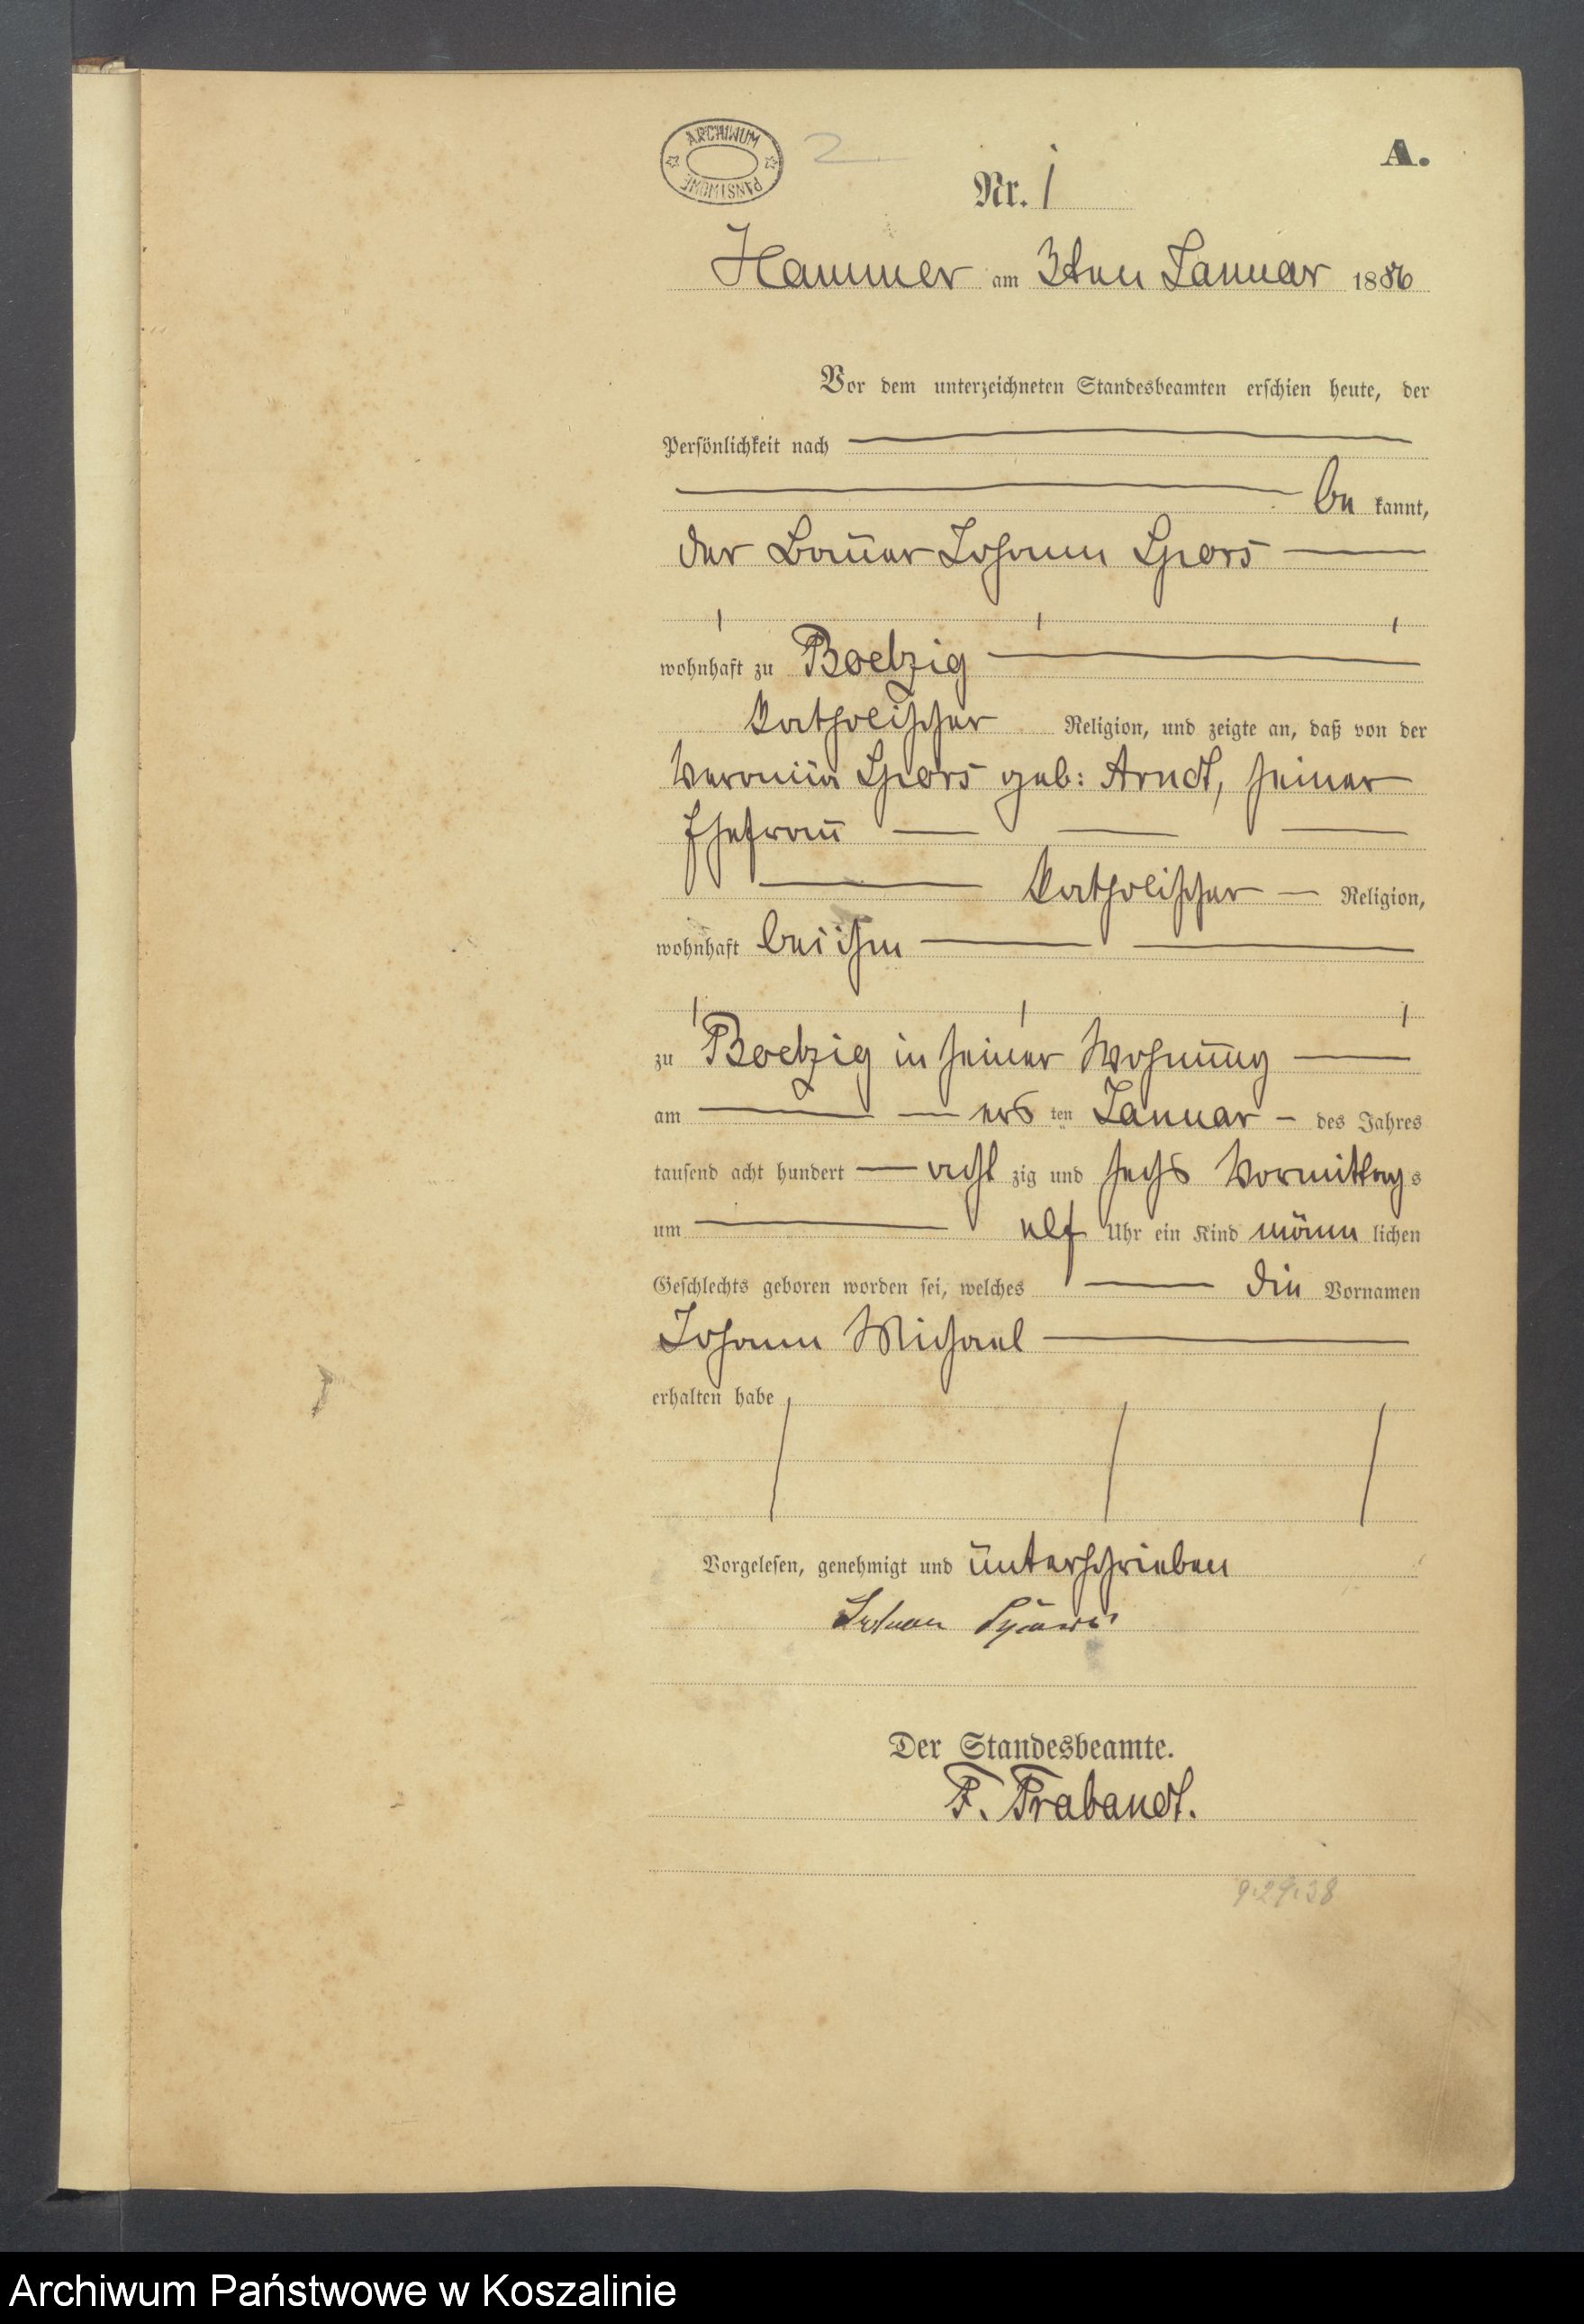 ARCHIWUM PAŃSTWOWE
2
A.
Nr. 1
Hammer am 3ten Januar 1886
Vor dem unterzeichneten Standesbeamten erschien heute, der
Persönlichkeit nach
be kannt,
der Bauer Johann Spors
wohnhaft zu Boelzig
katholischer Religion, und zeigte an, daß von der
Spors geb: Arndt, seiner
Ehefrau
katholischer Religion,
wohnhaft bei ihm
zu Boelzig in seiner Wohnung
am ers ten Januar des Jahres
tausend acht hundert acht zig und sechs Vormittag s
um elf Uhr ein Kind männ lichen
Geschlechts geboren worden sei, welches die Vornamen
Johann Michael
erhalten habe
Vorgelesen, genehmigt und unterschrieben
Der Standesbeamte.
F. Prabandt.
Archiwum Państwowe w Koszalinie